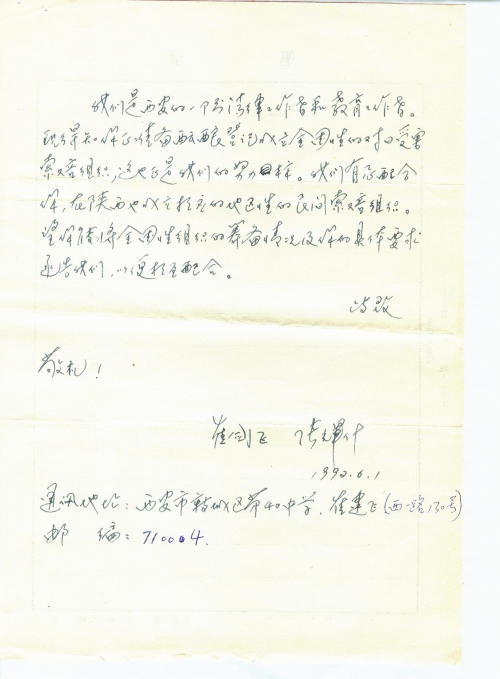 我们是西安的一个别法律工作者和教育工作者。
现得知你正筹备酝酿登记成立全国性的对日受害
索赔组织,这也正是我们的努力目标。我们有意配合
你,在陕西也成立相应的地区性的民间索赔组织。
望你能将全国性组织的筹备情况及你的具体要求
函告我们,以便相互配合。
此致
敬礼!
崔建飞 张
1992.6.1
通讯地址:西安市新城区第40中学.崔建飞(西一路130号)
邮 编:710004.